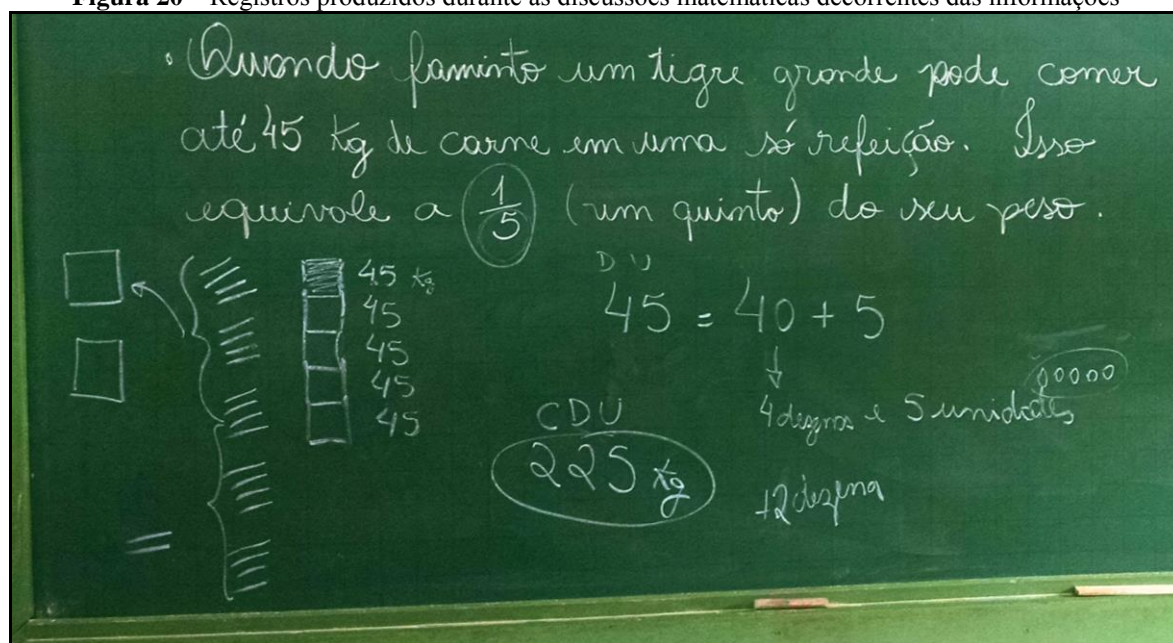 Figura 20 – Registros produzidos durante as discussões matemáticas decorrentes das informações
• Quando faminto um tigre grande pode comer
até 45 kg de carne em uma só refeição. Isso
equivale a 1/5 (um quinto) do seu peso.
45 kg
45
45
45
45
D U
45 = 40 + 5
4 dezenas e 5 unidades
CDU
225 kg
+2 dezena